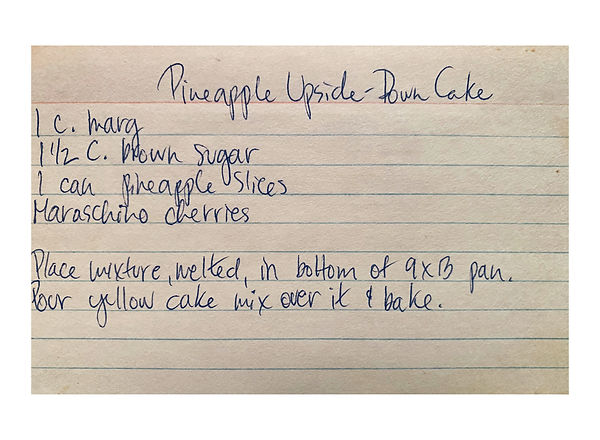 Pineapple Upside-Down Cake
1 c. marg
1 1/2 C. brown sugar
1 can pineapple slices
Maraschino cherries
Place mixture, melted, in bottom of 9x13 pan.
Pour yellow cake mix over it & bake.